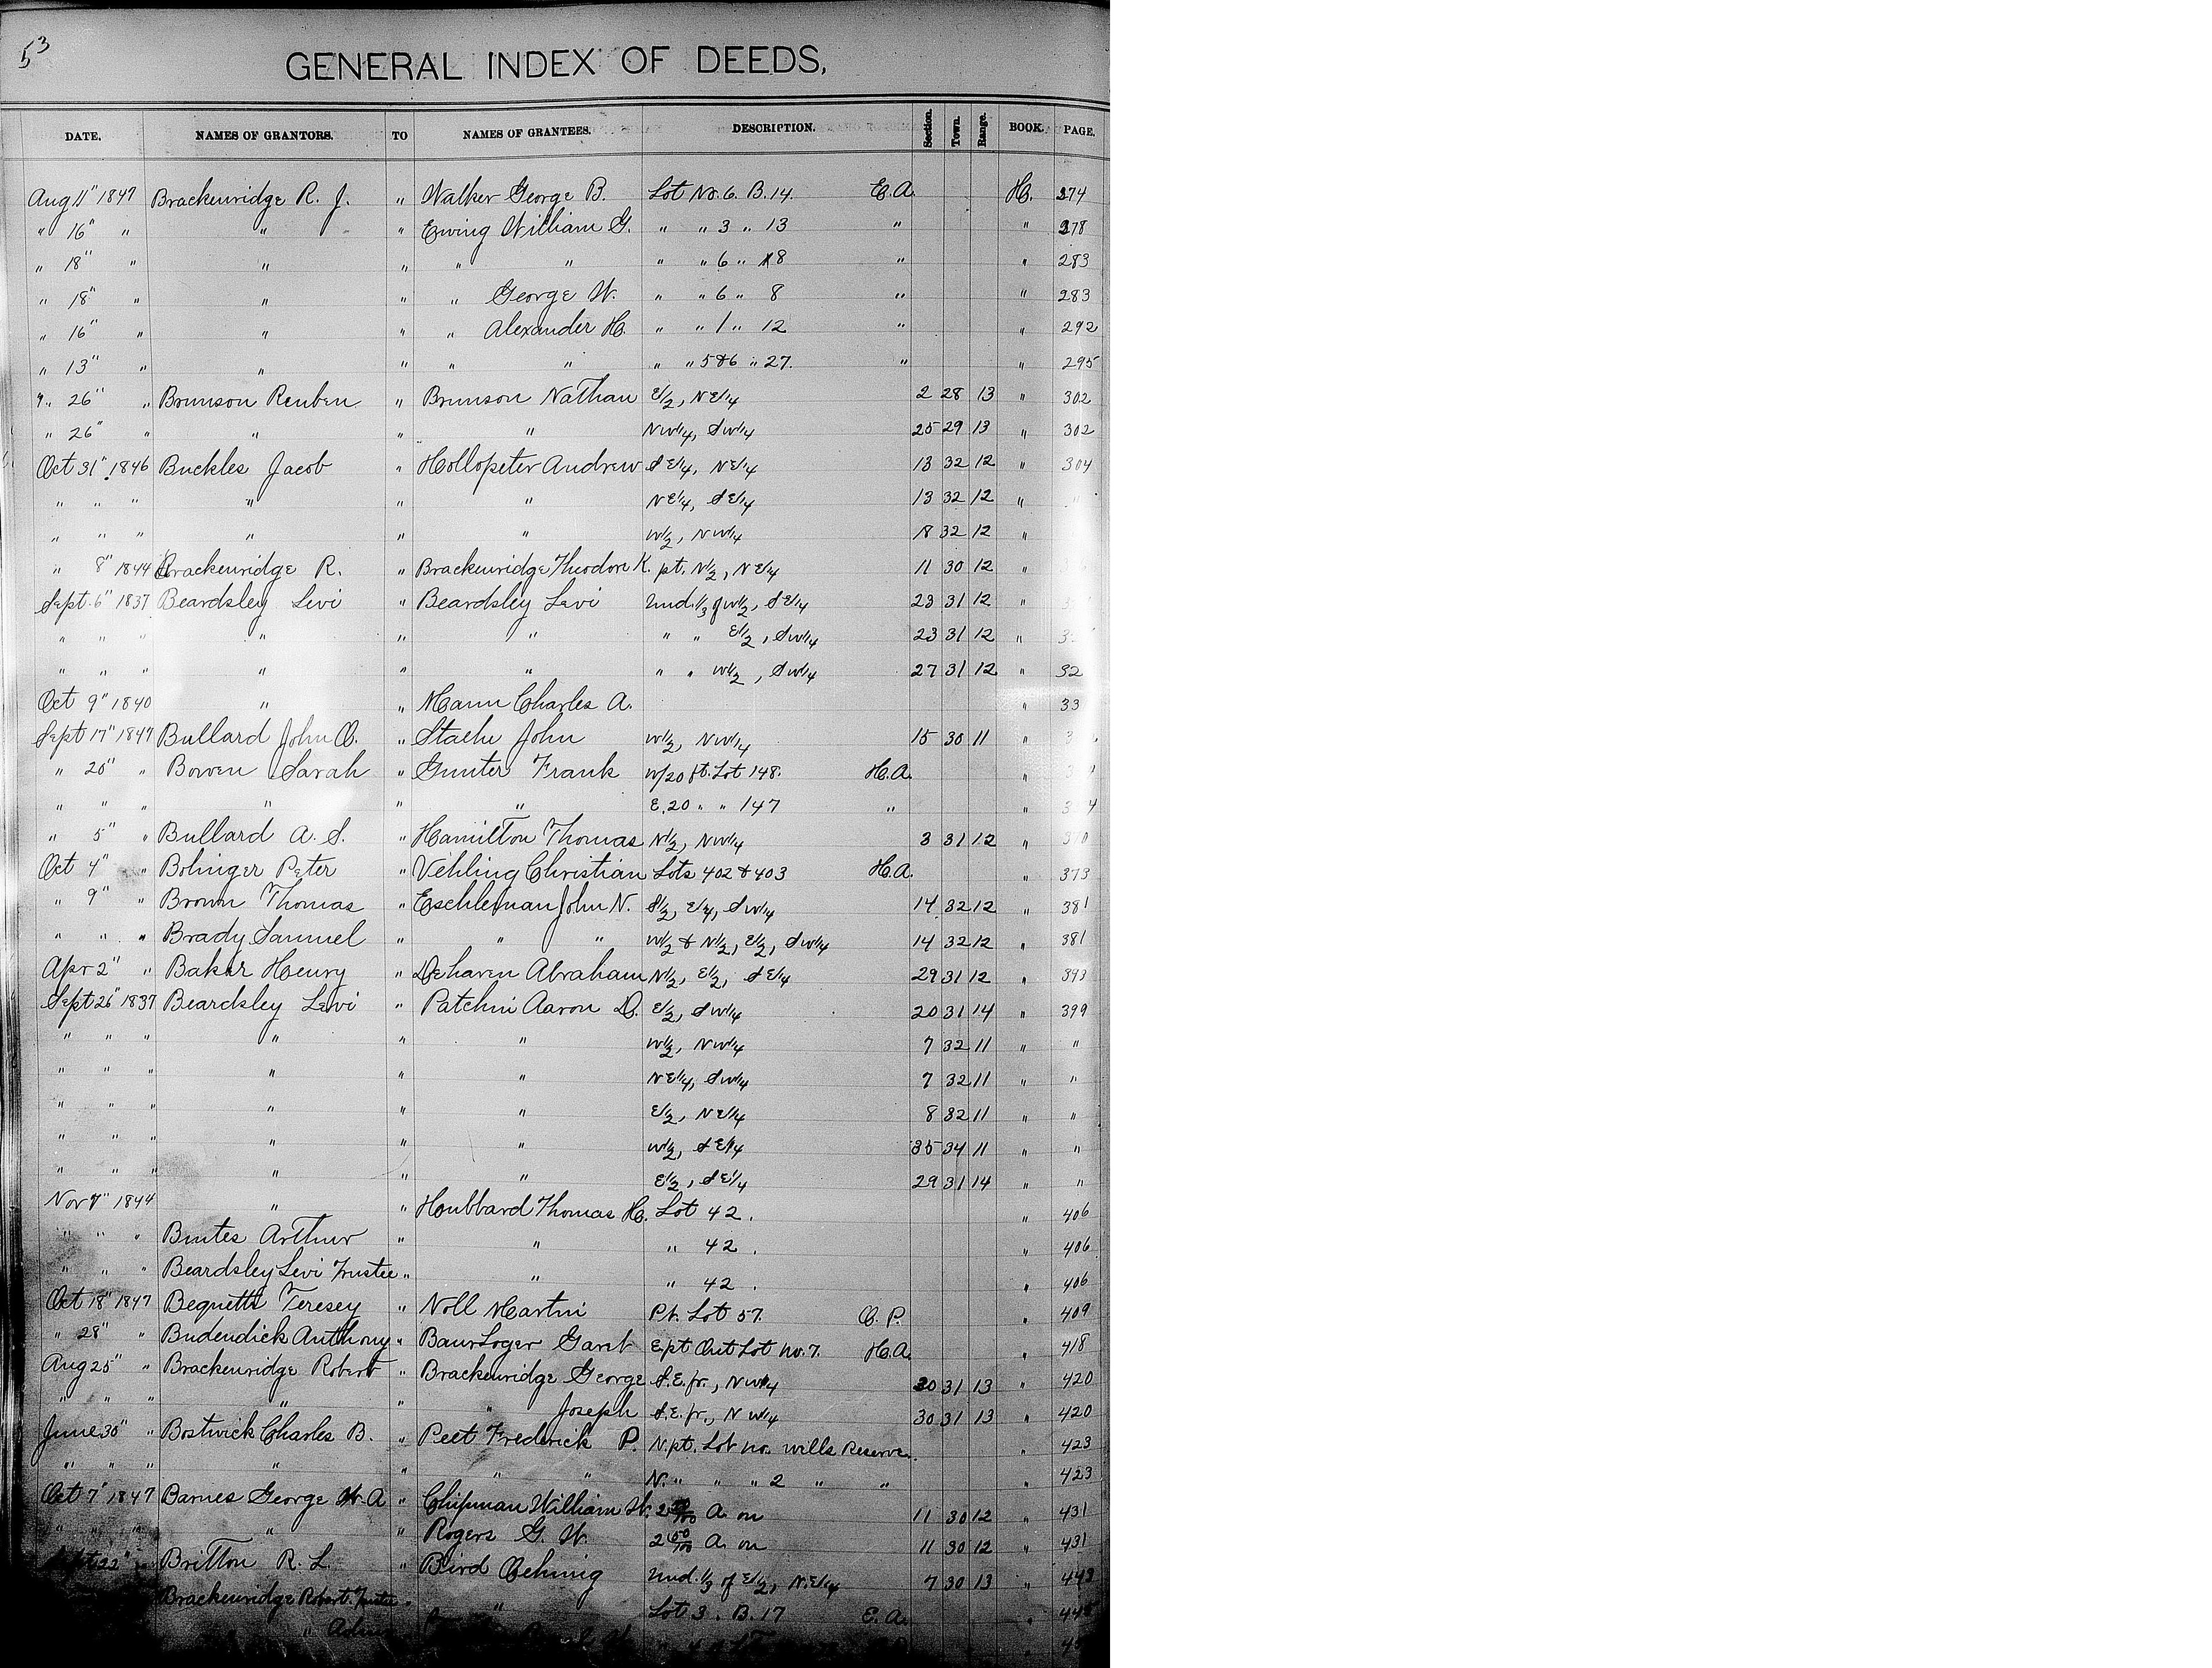 53
GENERAL INDEX OF DEEDS,
DATE. NAMES OF GRANTORS. TO NAMES OF GRANTEES. DESCRIPTION. Section. Town. Range. BOOK. PAGE.
Aug 11" 1847 Brackenridge R. J. " Walker George B. Lot No. 6. B. 14. E.A. H. 274
" 16" " " " Ewing William G. " " 3 " 13 " " 278
" 18" " " " " " " " 6 " 18 " " 283
" 18" " " " " George W. " " 6 " 8 " " 283
" 16" " " " " Alexander H. " " 1 " 12 " " 292
" 13" " " " " " " " 5&6 " 27. " " 295
" 26" " Brunson Reuben " Brunson Nathan E1/2, NE1/4 2 28 13 " 302
" 26" " " " " NW1/4, SW1/4 25 29 13 " 302
Oct 31" 1846 Buckles Jacob " Hollopeter Andrew SE1/4, NE1/4 13 32 12 " 304
" " " " " " NE1/4, SE1/4 13 32 12 " "
" " " " " " W1/2, NW1/4 18 32 12 "
" 8" 1844 Brackenridge R. " Brackenridge Theodore K. pt. N1/2, NE1/4 11 30 12 "
Sept. 6" 1837 Beardsley Levi " Beardsley Levi Und. 1/3 of W1/2, SE1/4 23 31 12 "
" " " " " " " " E1/2, SW1/4 23 31 12 "
" " " " " " " " W1/2, SW1/4 27 31 12 " 32
Oct 9" 1840 " " Mann Charles A. " 33
Sept 17" 1847 Bullard John O. " Staehe John W1/2, NW1/4 15 30 11 "
" 20" " Bowen Sarah " Gunter Frank W/20 ft. Lot 148. H.A. "
" " " " " " E. 20 " " 147 " "
" 5" " Bullard A. S. " Hamilton Thomas N1/2, NW1/4 3 31 12 " 370
Oct 4" " Bolinger Peter " Vehling Christian Lots 402 & 403 H.A. " 373
" 9" " Brown Thomas " Eschleman John N. S1/2, E1/4, SW1/4 14 32 12 " 381
" " " Brady Samuel " " " W1/2 & N1/2, E1/2, SW1/4 14 32 12 " 381
Apr 2" " Baker Henry " Dehaven Abraham N1/2, E1/2, SE1/4 29 31 12 " 393
Sept 26" 1837 Beardsley Levi " Patchin Aaron D. E1/2, SW1/4 20 31 14 " 399
" " " " " " W1/2, NW1/4 7 32 11 " "
" " " " " " NE1/4, SW1/4 7 32 11 " "
" " " " " " E1/2, NE1/4 8 32 11 " "
" " " " " " W1/2, SE1/4 35 34 11 " "
" " " " " " E1/2, SE1/4 29 31 14 " "
Nov 7" 1844 " " Houbbard Thomas H. Lot 42. " 406
" " " Bintes Arthur " " " 42. " 406
" " " Beardsley Levi Trustee " " " 42. " 406
Oct 18" 1847 Bequette Teresey " Noll Martin Pt. Lot 57. O.P. " 409
" 28" " Budendick Anthony " Bauer Garet E. pt Out Lot no. 7. H.A. " 418
Aug 25" " Brackenridge Robert " Brackenridge George S.E. fr., NW1/4 30 31 13 " 420
" " " " " " Joseph S.E. fr., NW1/4 30 31 13 " 420
June 30" " Bostwick Charles B. " Peet Frederick P. N. pt. Lot no. wells Reserve. " 423
" " " " " " " N. " " " 2 " " " 423
Oct 7" 1847 Barnes George W. A " Chipman William W. 2 50/100 A. on 11 30 12 " 431
" " " " " Rogers G. W. 2 50/100 A. on 11 30 12 " 431
Sept 22" " Britton R. L. " Bird Ochmig Und. 1/3 of E1/2, N.E1/4 7 30 13 " 443
Brackenridge Robert Trustee " " Lot 3. B. 17 E.A. "
" Admr